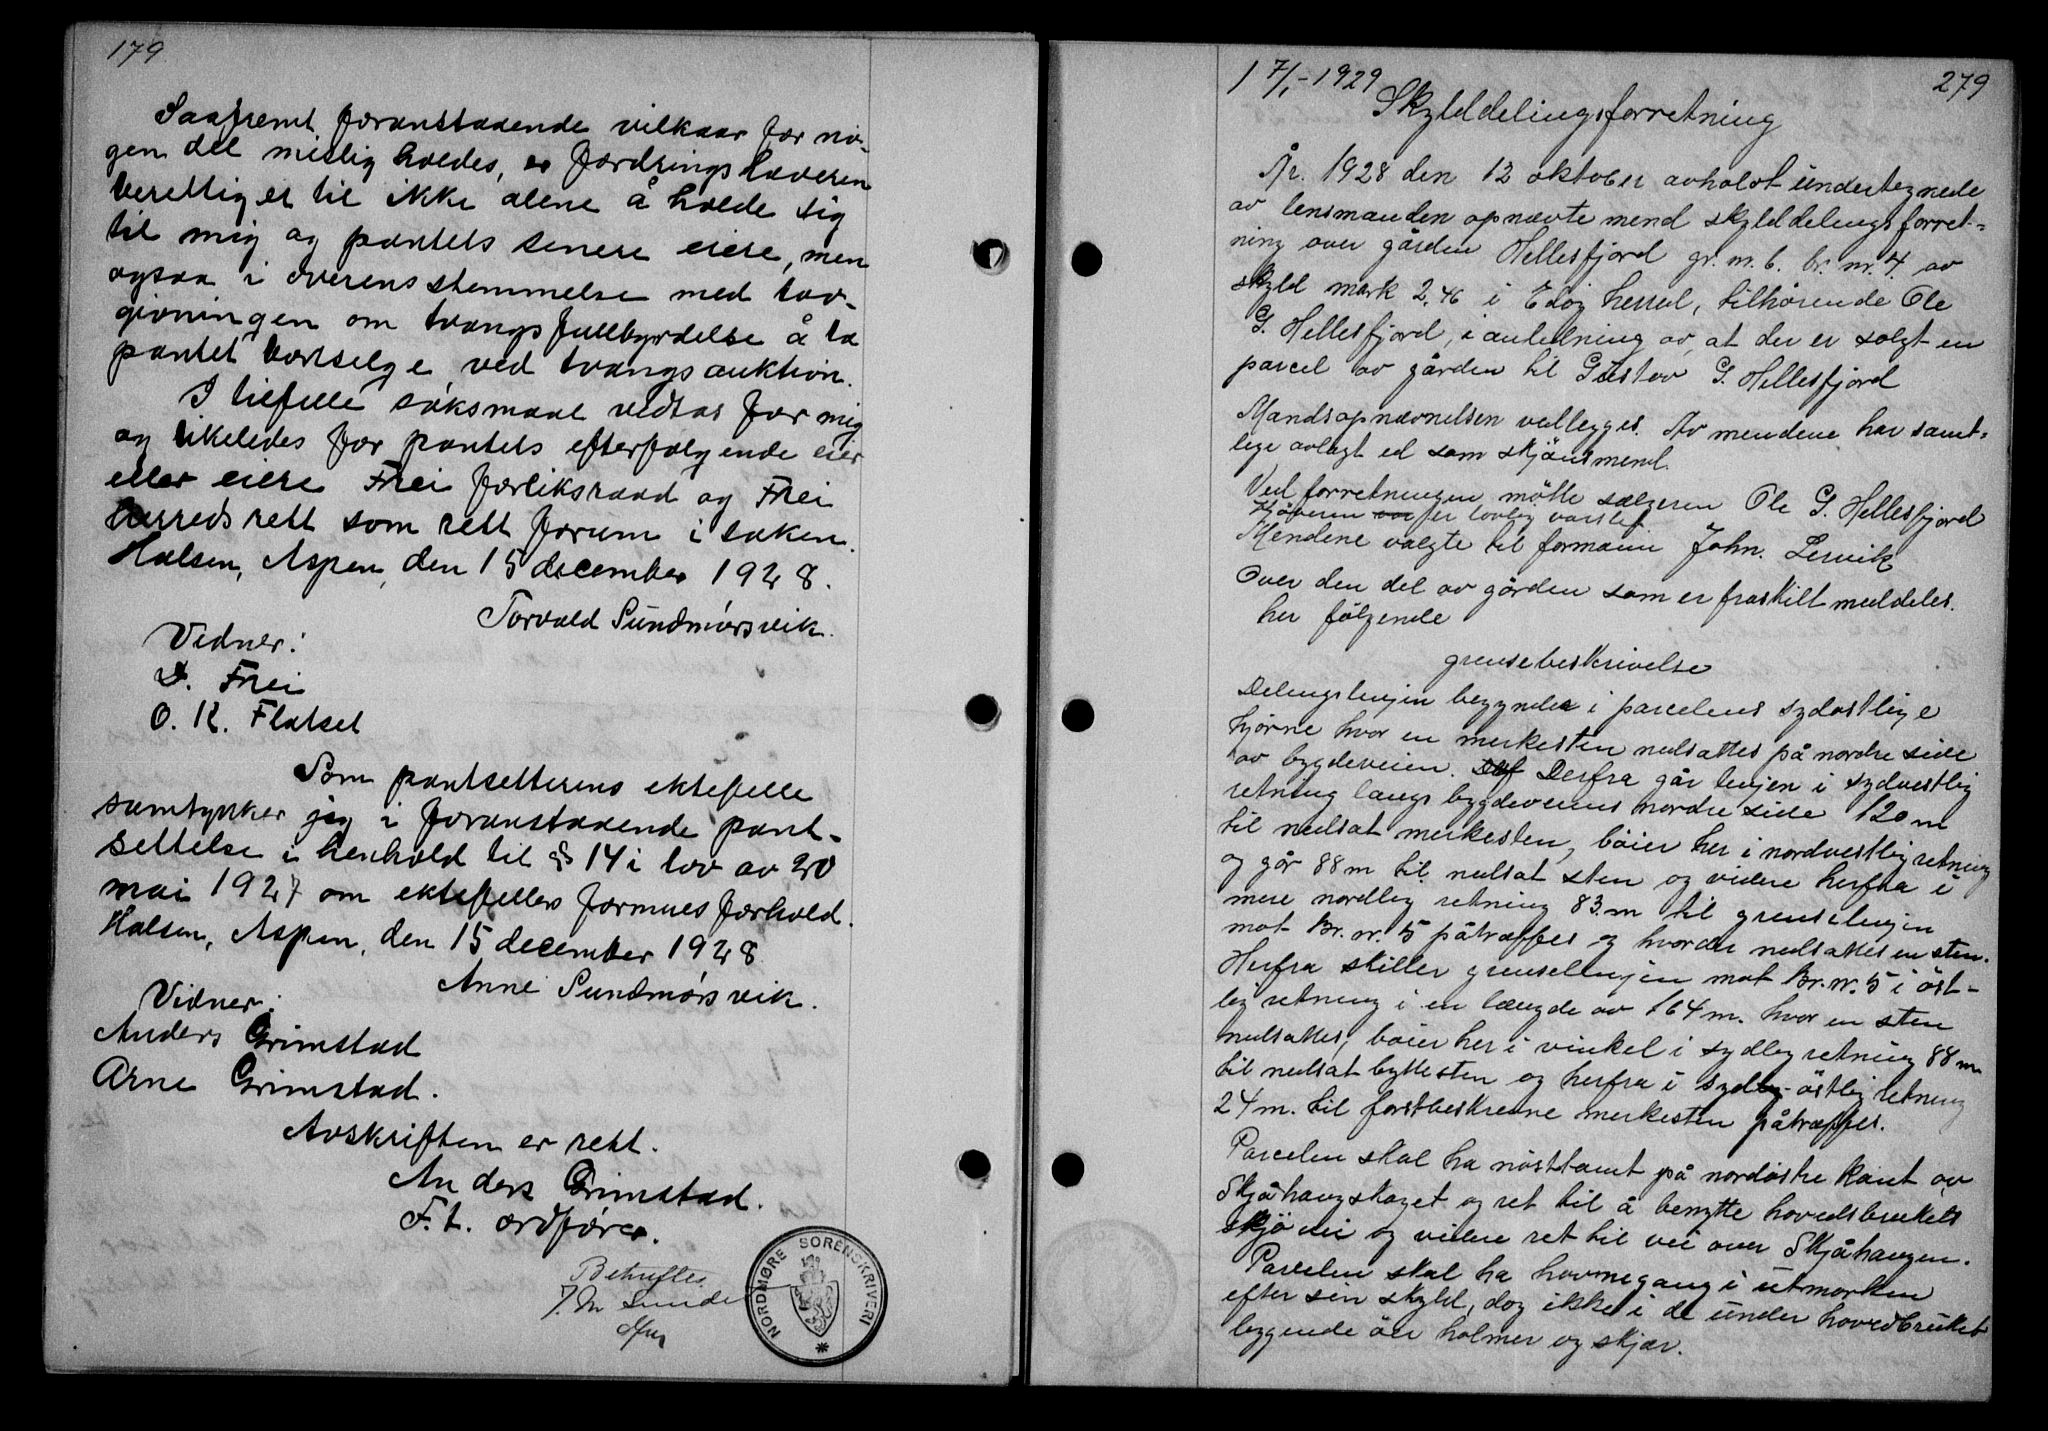 179
Saafremt foranstaaende vilkaar for no-
gen del mislig holdes, er fordringshaveren
berettiget til ikke alene å holde sig
til mig og pantets senere eiere, men
ogsaa i overensstemmelse med lov-
givningen om tvangsfullbyrdelse å la
pantet bortselge ved tvangsauktion.
I tilfelle søksmaal vedtas for mig
og likeledes for pantets efterfølgende eier
eller eiere Frei forliksraad og Frei
herredsrett som rett forum i saken.
Halsen, Aspen, den 15 december 1928.
Torvald Sundmørsvik.
Vidner:
D. Frei
O. K. Flatset
Som pantsetterens ektefelle
samtykker jeg i foranstaaende pant-
settelse i henhold til § 14 i lov av 20
mai 1927 om ektefellers formuesforhold.
Halsen, Aspen, den 15 december 1928
Anne Sundmørsvik.
Vidner:
Anders Grimstad
Arne Grimstad.
Avskriften er rett.
Anders Grimstad.
F. t. ordfører.
Bekreftes
NORDMØRE SORENSKRIVERI
17/1-1929
279
Skylddelingsforretning
År. 1928 den 12 oktober avholdt undertegnede
av lensmanden opnævte mend skylddelingsforret-
ning over gården Hellesfjord gr. nr. 6. br. nr. 4. av
skyld mark 2,46 i Edøy herred, tilhørende Ole
G. Hellesfjord, i anledning av, at der er solgt en
parcel av gården til Gustav G. Hellesfjord
Mandsopnævnelsen vedlegges. Av mendene har samt-
lige avlagt ed som skjönsmend.
Ved forretningen mötte sælgeren Ole G. Hellesfjord
Kjöberen var for lovlig varslet.
Mendene valgte til formann John. Lervik
Over den del av gården som er fraskilt meddeles.
her fölgende
grensebeskrivelse
Delingslinjen begynder i parcelens sydostlige
hjörne hvor en merkesten nedsattes på nordre side
av bygdeveien. Derfra går linjen i sydvestlig
retning langs bygdeveiens nordre side 120 m
til nedsat merkesten, böier her i nordvestlig retning
og går 88 m til nedsat sten og videre herfra i
mere nordlig retning 83 m til grenselinjen
mot Br. nr. 5 påtræffes og hvor der nedsattes en sten.
Herfra skiller grenselinjen mot Br. nr. 5 i öst-
lig retning i en længde av 164 m. hvor en sten
nedsattes, böier her i vinkel i sydlig retning 88 m
til nedsat byttesten og herfra i sydlig-östlig retning
24 m. til förstbeskrevne merkesten påtræffes.
Parcelen skal ha nösttomt på nordöstre kant av
Skjåhaugskaget og ret til å benytte hovedsbrukets
sjövei og videre ret til vei over Skjåhaugen.
Parcelen skal ha havnegang i utmarken
efter sin skyld, dog ikke i de under hovedbruket
liggende öer holmer og skjær.